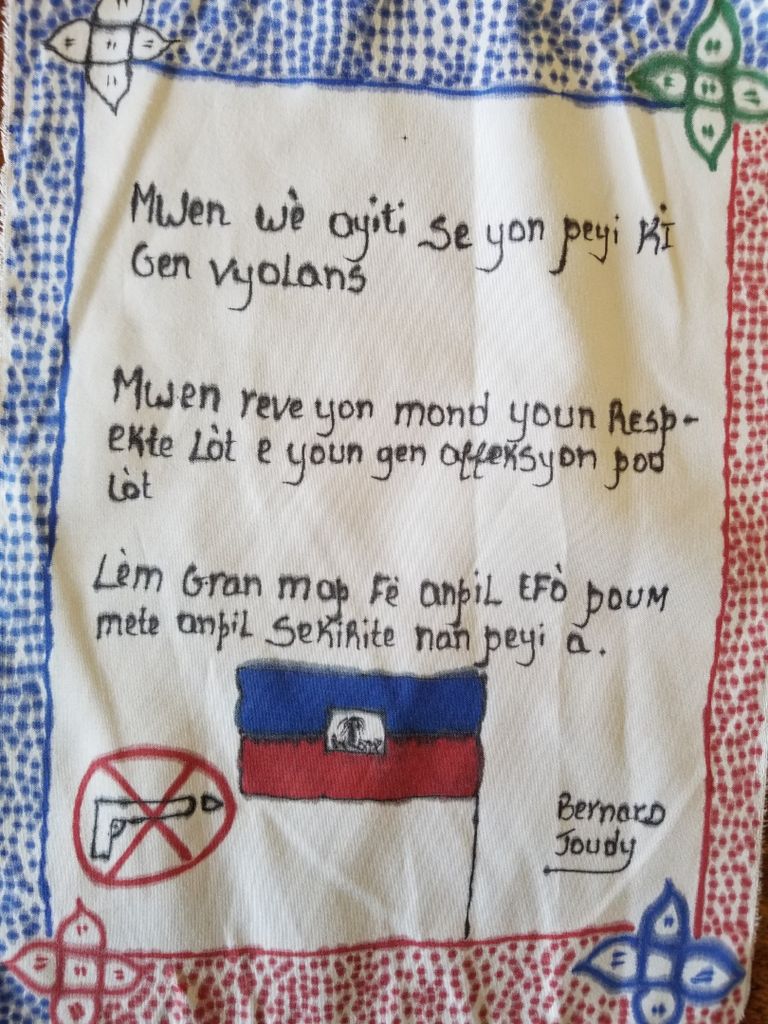 Mwen wè ayiti se yon peyi ki
Gen vyolans
Mwen reve yon mond youn Resp-
ekte Lòt e youn gen affeksyon pou
Lòt
Lèm Gran map Fè anpil EFÒ pouM
mete anpil SekiRite nan peyi a.
Bernard
Joudy